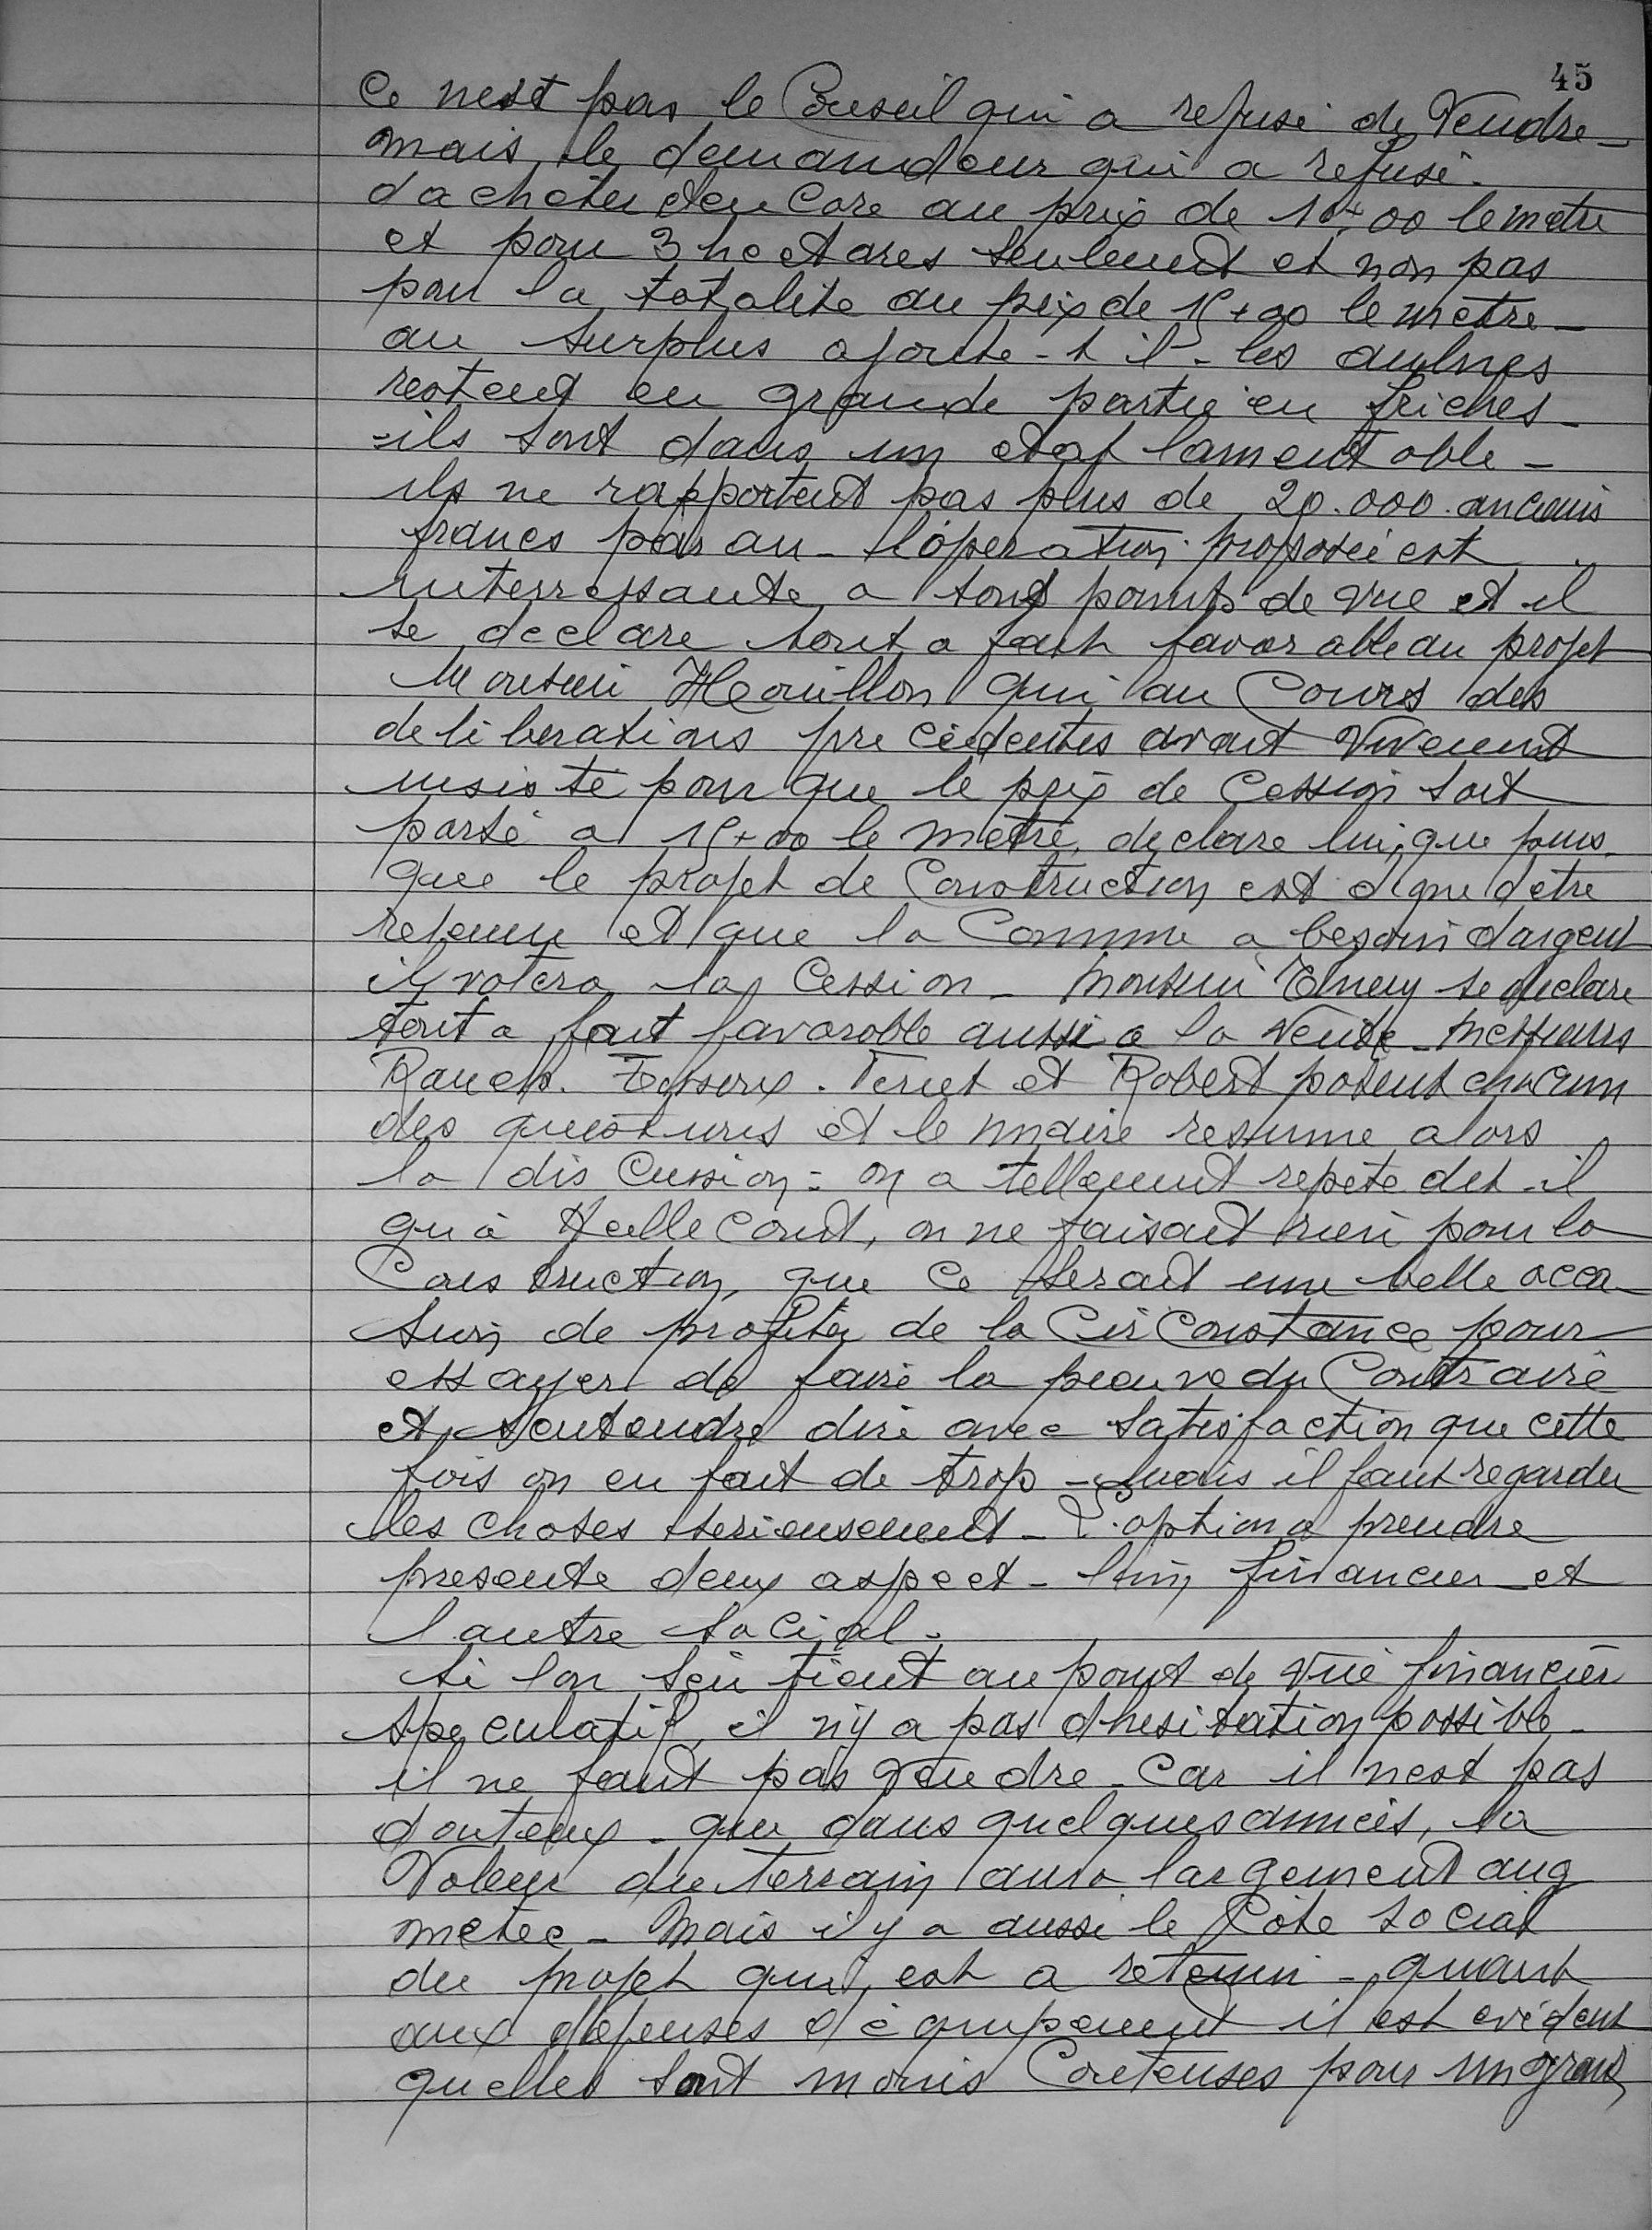 45
Ce nest pas le Conseil qui a refusé de Vendre -
mais le demandeur qui a refusé -
dacheter et encore au prix de 10+00 le metre
et pour 3 hectares seulement et non pas
pour la totalité au prix de 15+00 le metre -
au surplus ajoute-t il - les aulnes
restent en grande partie en friches -
- ils sont dans un etat lamentable -
ils ne rapportent pas plus de 20.000 anciens
francs par an - l'operation proposée est
interressante a tout points de vue et il
se declare tout a fait favorable au projet
Monsieur Houillon qui au Cours des
deliberations precedentes avait vivement
insisté pour que le prix de Cession soit
porté a 15+00 le metre, declare lui, que puis-
que le projet de Construction est digne d'etre
retenu et que la Commune a besoin dargent
il votera la Cession - Monsieur Emery se declare
tout a fait favorable aussi a la Vente - Messieurs
Rauch. Terver et Robert posent chacun
des questions et le maire resume alors
la discussion : on a tellement repete dit-il
qu'a Hellecourt, on ne faisait rien pour la
Construction, que ce serait une belle occa-
sion de profiter de la Circonstance pour
essayer de faire la preuve du Contraire
et sentendre dire avec satisfaction que cette
fois on en fait de trop - mais il faut regarder
les choses serieusement - L'option a prendre
presente deux aspect - l'un, financier - et
l'autre social -
Si lon sen tient au point de vue financier
speculatif, il n'y a pas dhesitation possible -
il ne faut pas vendre - Car il nest pas
douteux - que dans quelques années, la
Valeur du terrain aura largement aug
metée - Mais il y a aussi le Coté social
du projet qui est a retenir - quant
aux depenses d'equipement il est evident
quelles sont moins Couteuses pour un grand